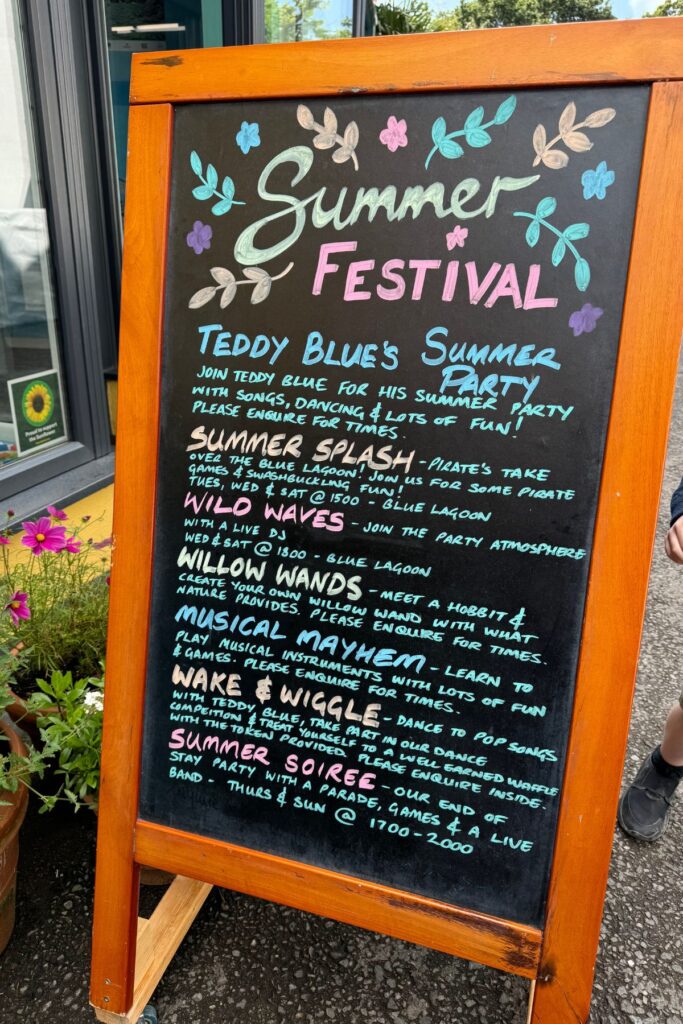 Summer
FESTIVAL
TEDDY BLUE'S SUMMER
PARTY
JOIN TEDDY BLUE FOR HIS SUMMER PARTY
WITH SONGS, DANCING & LOTS OF FUN!
PLEASE ENQUIRE FOR TIMES.
SUMMER SPLASH - PIRATE'S TAKE
OVER THE BLUE LAGOON! JOIN US FOR SOME PIRATE
GAMES & SWASHBUCKLING FUN!
TUES, WED & SAT @ 1500 - BLUE LAGOON
WILD WAVES - JOIN THE PARTY ATMOSPHERE
WITH A LIVE DJ
WED & SAT @ 1800 - BLUE LAGOON
WILLOW WANDS - MEET A HOBBIT &
CREATE YOUR OWN WILLOW WAND WITH WHAT
NATURE PROVIDES. PLEASE ENQUIRE FOR TIMES.
MUSICAL MAYHEM - LEARN TO
PLAY MUSICAL INSTRUMENTS WITH LOTS OF FUN
& GAMES. PLEASE ENQUIRE FOR TIMES.
WAKE & WIGGLE - DANCE TO POP SONGS
WITH TEDDY BLUE, TAKE PART IN OUR DANCE
COMPETITION & TREAT YOURSELF TO A WELL EARNED WAFFLE
WITH THE TOKEN PROVIDED. PLEASE ENQUIRE INSIDE.
SUMMER SOIREE - OUR END OF
STAY PARTY WITH A PARADE, GAMES & A LIVE
BAND - THURS & SUN @ 1700-2000
Proud to support
the Sunflower